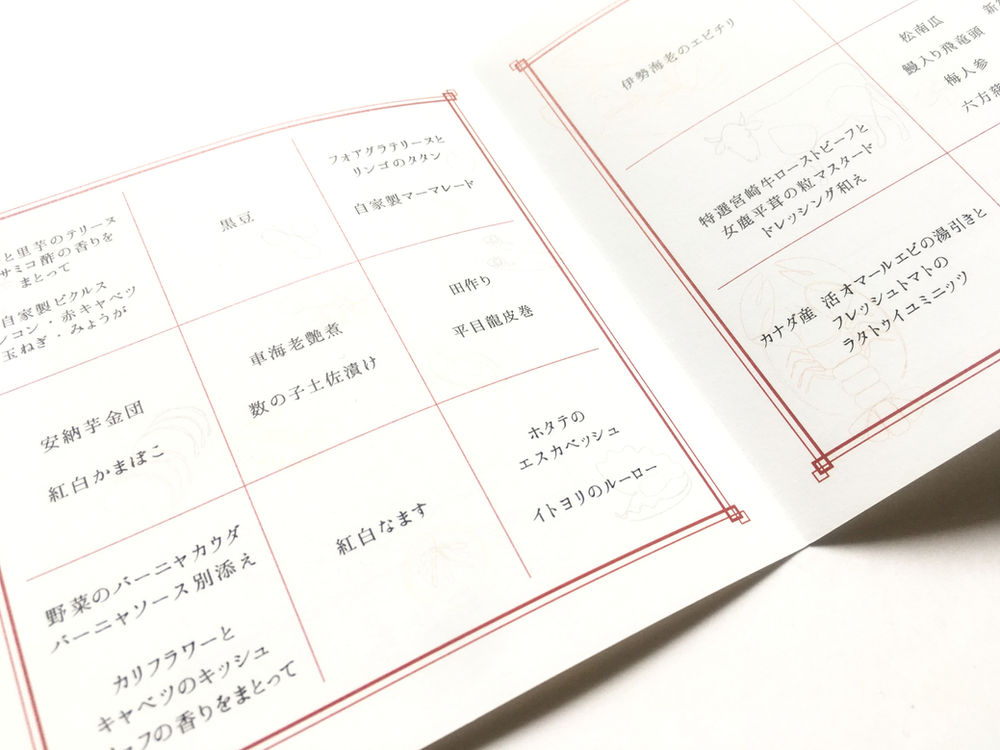 と里芋のテリーヌ
サミコ酢の香りを
まとって
自家製ピクルス
コン・赤キャベツ
玉ねぎ・みょうが
黒豆
フォアグラテリーヌと
リンゴのタタン
自家製マーマレード
安納芋金団
紅白かまぼこ
車海老艶煮
数の子土佐漬け
田作り
平目龍皮巻
野菜のバーニャカウダ
バーニャソース別添え
カリフラワーと
キャベツのキッシュ
フの香りをまとって
紅白なます
ホタテの
エスカベッシュ
イトヨリのルーロー
伊勢海老のエビチリ
松南瓜
鰻入り飛竜頭
梅人参
六方
特選宮崎牛ローストビーフと
女鹿平茸の粒マスタード
ドレッシング和え
カナダ産 活オマールエビの湯引きと
フレッシュトマトの
ラタトゥイユミニッツ